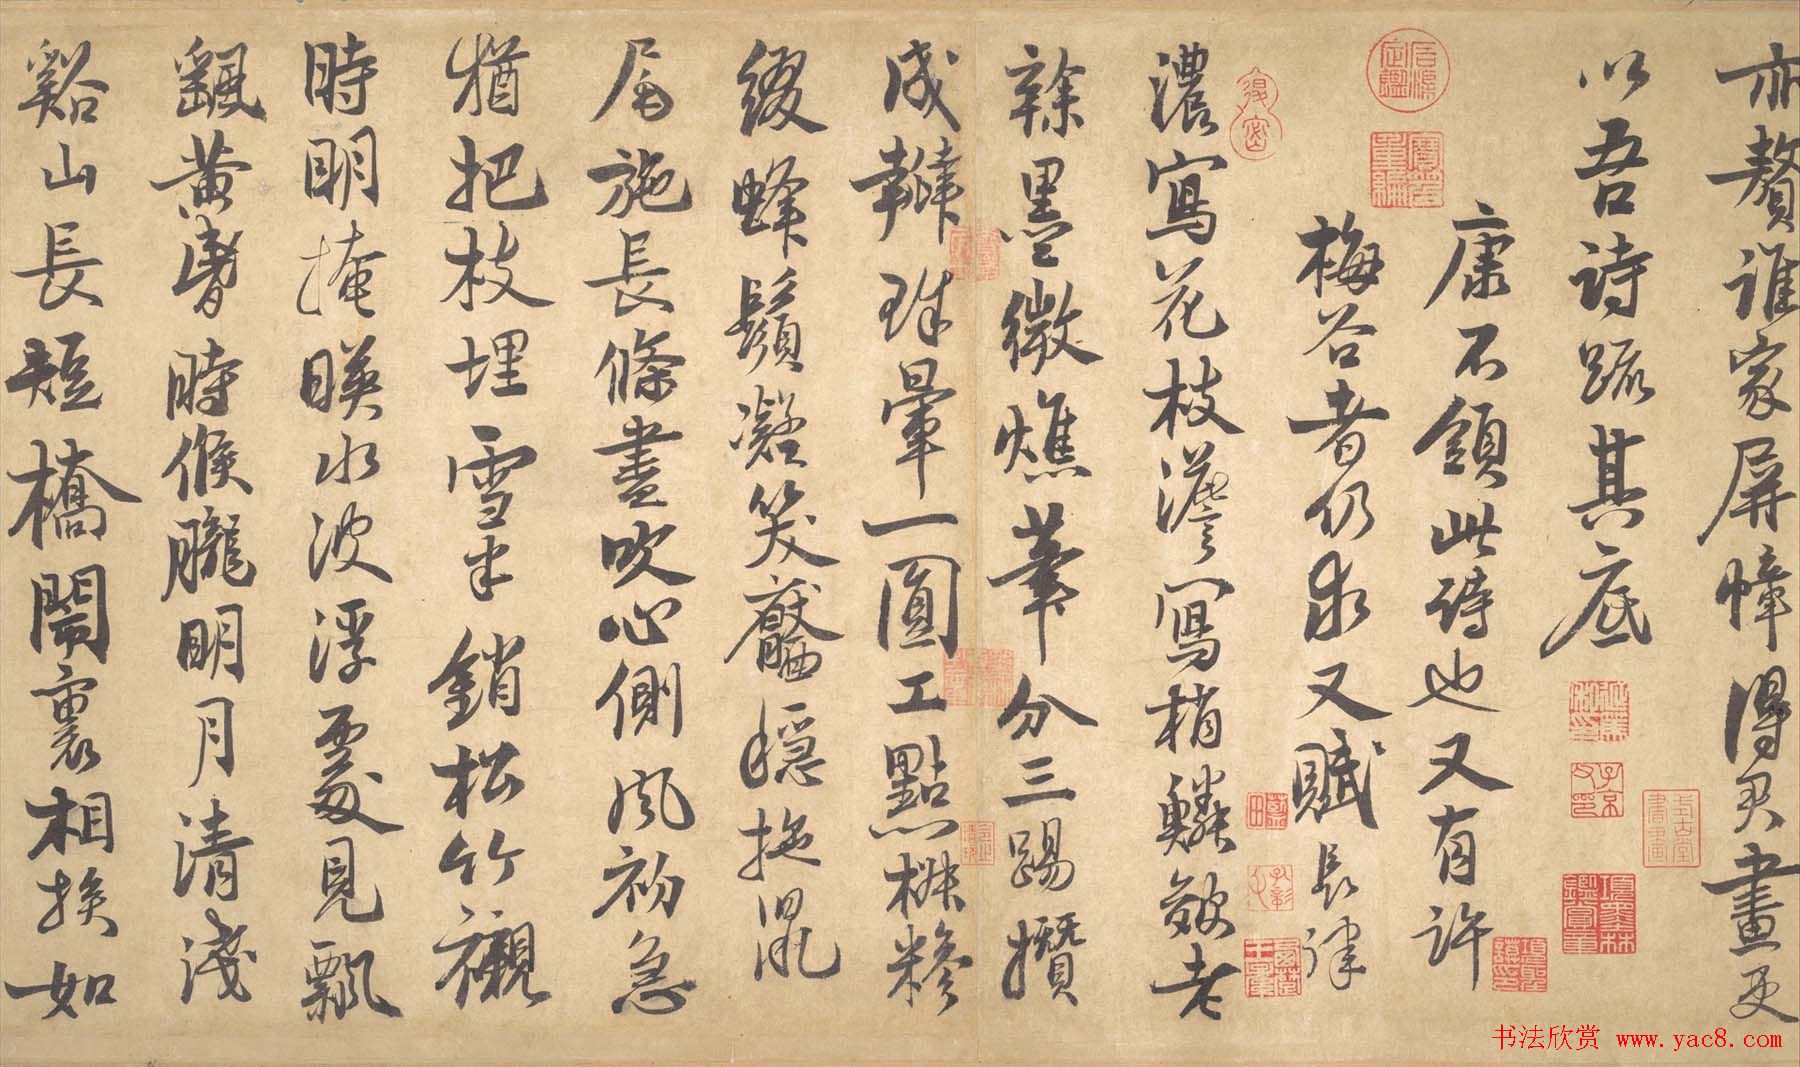 亦贅誰家屏幛得君畫更
以吾詩疏其底
康不領此詩也又有許
梅谷者仍求又賦長律
濃寫花枝澹寫梢鱗皴老
榦墨微燋筆分三踢攢
成瓣珠暈一圓工點椒糝
綴蜂鬚凝笑靨穩拖鼠
尾施長條盡吹心側風初急
猶把枝埋雪半銷松竹襯
時明掩暎水波浮處見飄
飄黃昏時候朧明月清淺
谿山長短橋鬧裏相挨如
书法欣赏 www.yac8.com